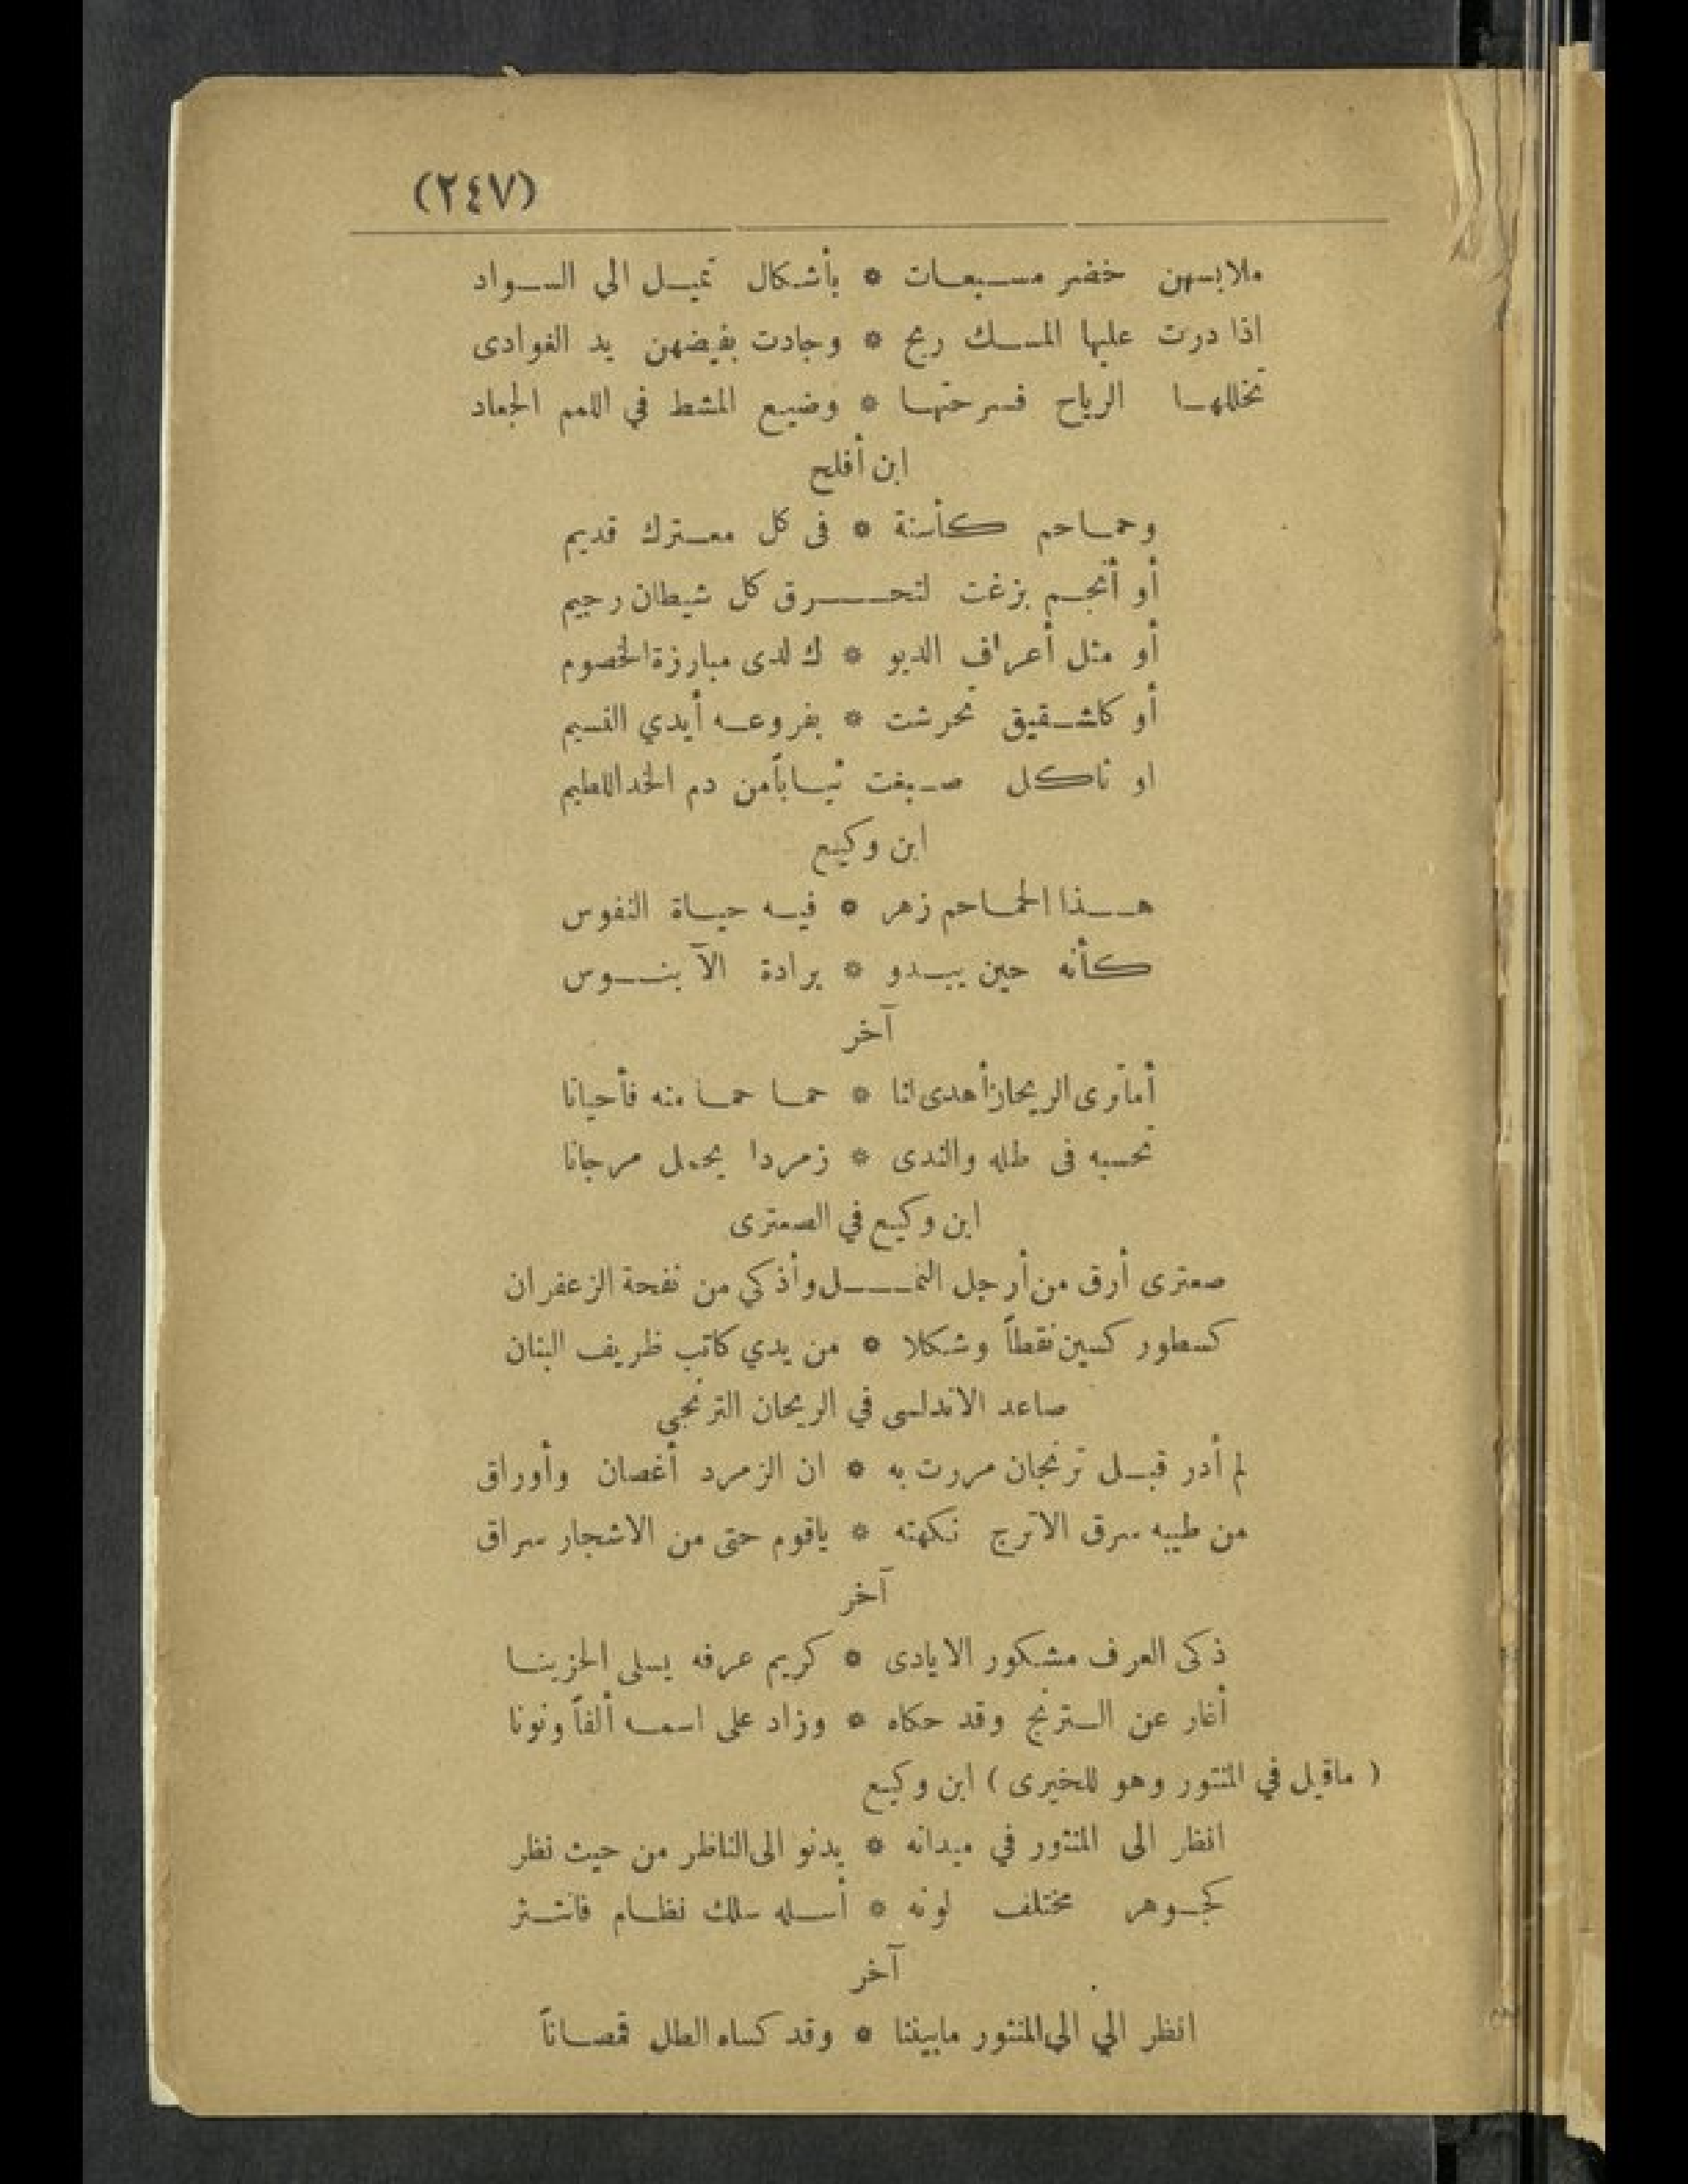 (٢٤٧)
ملابسهن خضر مسبعات * بأشكال تميل الى السواد
اذا درت عليها المسك ريح * وجادت بفيضهن يد الغوادى
تخللها الرياح فسرحتها * وضيع المشط في اللمم الجعاد
ابن أفلح
وحماحم كأسنة * فى كل معترك قديم
أو أنجم بزغت لتحرق كل شيطان رجيم
أو مثل أعراف الديو * ك لدى مبارزة الخصوم
أو كاشقيق تحرشت * بفروعه أيدي النسيم
او ثاكل صبغت ثياباً من دم الخد اللطيم
ابن وكيع
هذا الحماحم زهر * فيه حياة النفوس
كأنه حين يبدو * برادة الآبنوس
آخر
أما ترى الريحان أهدى لنا * حما حما منه فأحيانا
تحسبه فى طله والندى * زمردا يحمل مرجانا
ابن وكيع في الصعترى
صعترى أرق من أرجل النمل وأذكي من نفحة الزعفران
كسطور كسين نقطاً وشكلا * من يدي كاتب ظريف البنان
صاعد الاندلسى في الريحان الترنجي
لم أدر قبل ترنجان مررت به * ان الزمرد أغصان وأوراق
من طيبه سرق الاترج نكهته * ياقوم حتى من الاشجار سراق
آخر
ذكى العرف مشكور الايادى * كريم عرفه يسلى الحزينا
أغار عن الترنج وقد حكاه * وزاد على اسمه ألفاً ونونا
( ماقيل في المنثور وهو للخيرى ) ابن وكيع
انظر الى المنثور في ميدانه * يدنو الى الناظر من حيث نظر
كجوهر مختلف لونه * أسله سلك نظام فانتثر
آخر
انظر الي الي المنثور مابيننا * وقد كساه الطل قمصاناً